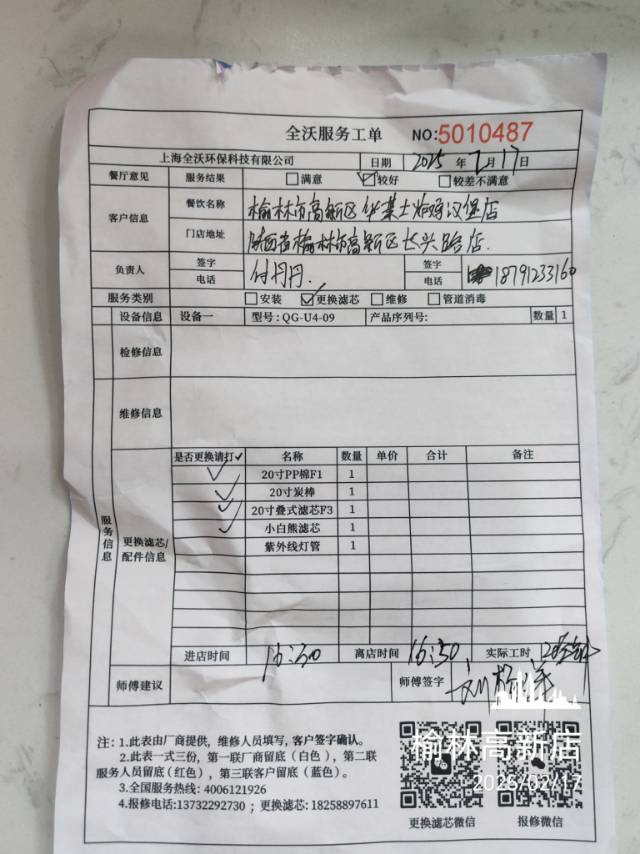 全沃服务工单 NO:5010487
上海全沃环保科技有限公司 日期 2025 年 2 月 17 日
餐厅意见 服务结果 □满意 ☑较好 □较差不满意
客户信息 餐饮名称 榆林市高新区华莱士炸鸡汉堡店
门店地址 陕西省榆林市高新区长兴路店
负责人 签字 付丹丹. 签字
电话 电话 18791233160
服务类别 □安装 ☑更换滤芯 □维修 □管道消毒
设备信息 设备一 型号:QG-U4-09 产品序列号: 数量 1
检修信息
维修信息
服务信息
更换滤芯/配件信息
是否更换请打✓ 名称 数量 单价 合计 备注
✓ 20寸PP棉F1 1
✓ 20寸炭棒 1
✓ 20寸叠式滤芯F3 1
✓ 小白熊滤芯 1
紫外线灯管 1
进店时间 离店时间 16:50 实际工时
师傅建议 师傅签字
注: 1.此表由厂商提供, 维修人员填写, 客户签字确认。
2.此表一式三份, 第一联厂商留底(白色), 第二联
服务人员留底(红色), 第三联客户留底(蓝色)。
3.全国服务热线: 4006121926
4.报修电话:13732292730 ; 更换滤芯: 18258897611
更换滤芯微信 报修微信
榆林高新店
2025/02/17